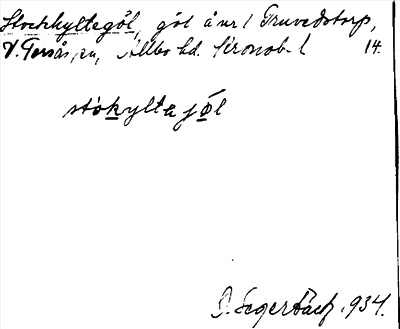 Stockhyltegöl, göl å nr 1 Truvedstorp,
V. Torsås sn, Allbo hd. Kronob. l 14.
stòkyltejö̀l
B. Segerbäck. 934.